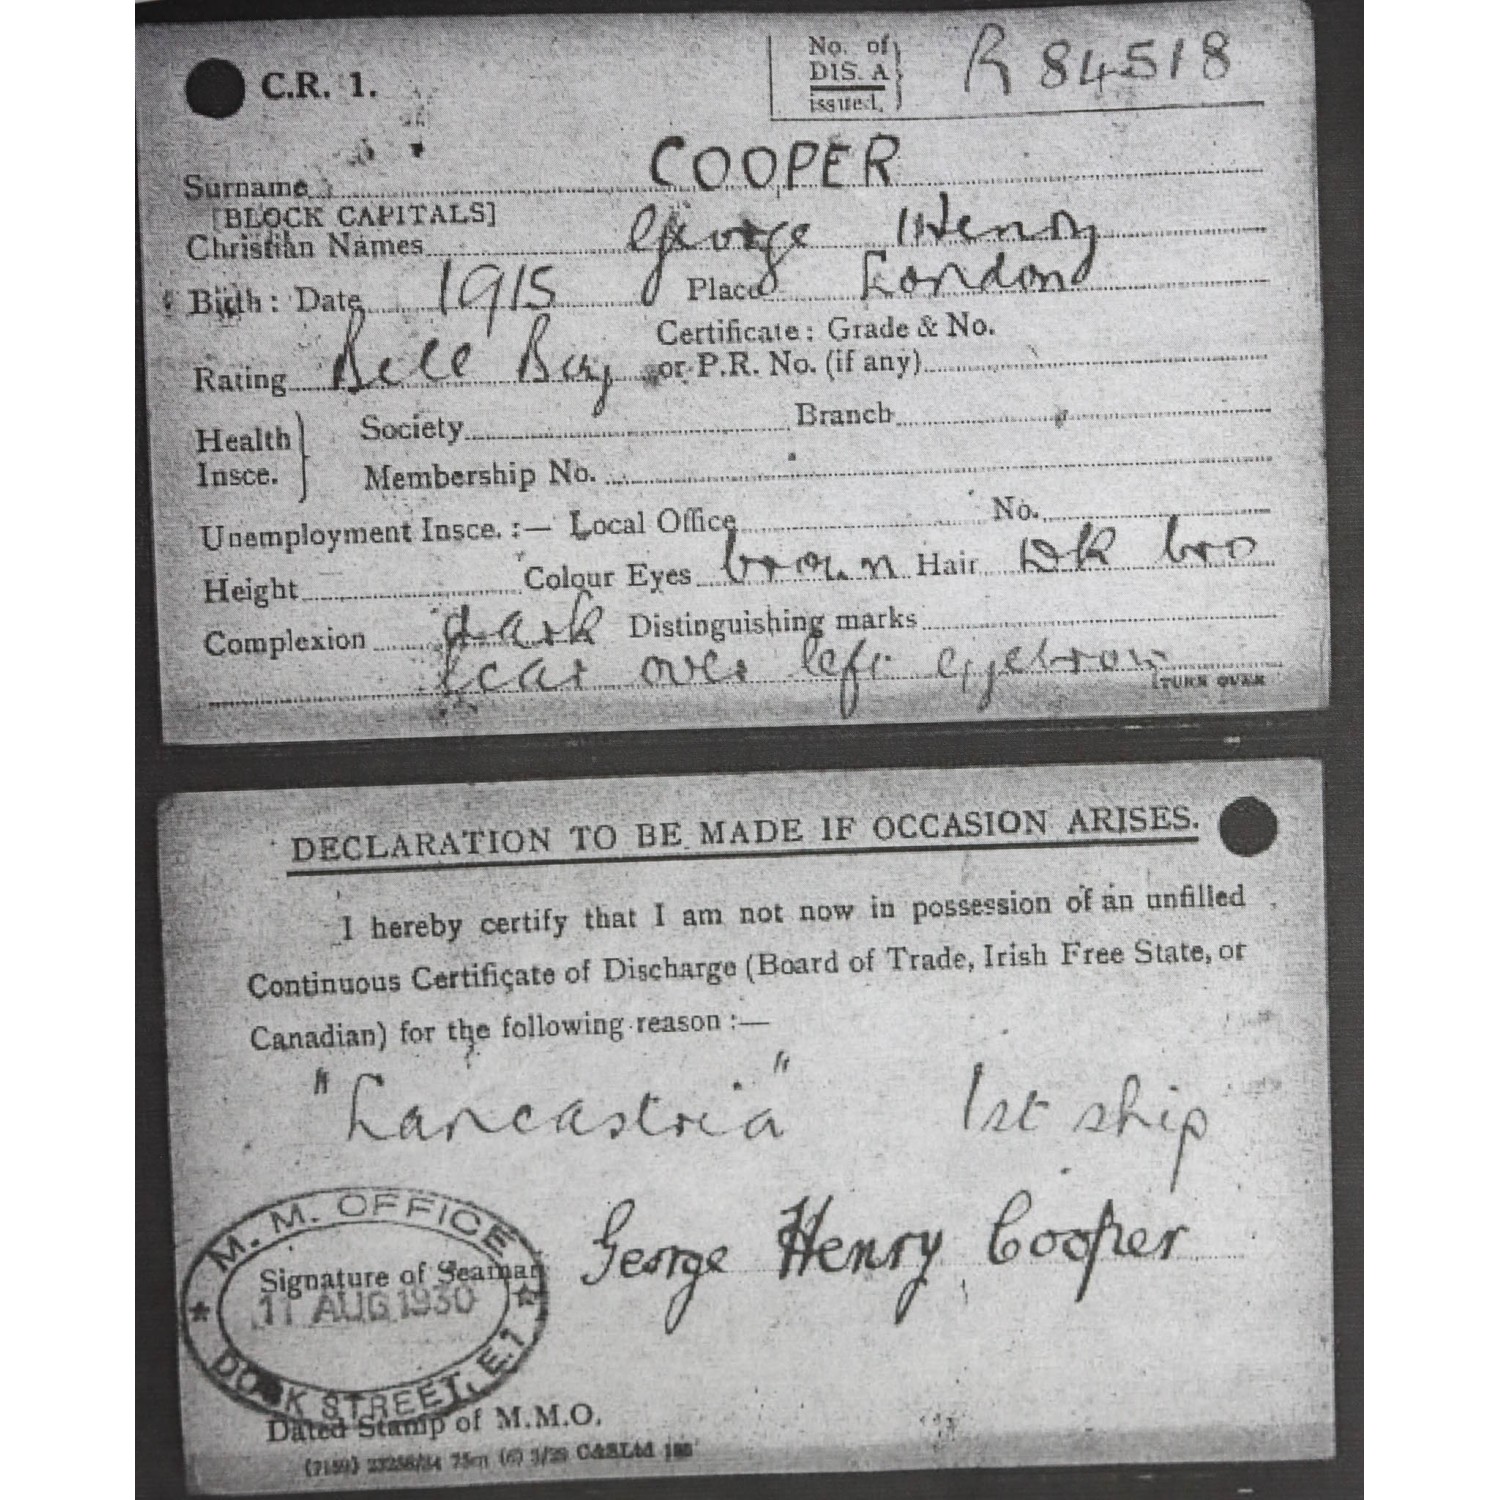 C.R. 1.
No. of
DIS. A
issued.
R 84518
Surname COOPER
[BLOCK CAPITALS]
Christian Names George Henry
Birth: Date 1915 Place London
Certificate: Grade & No.
Rating Bell Boy or P.R. No. (if any)
Health
Insce.
Society Branch
Membership No.
Unemployment Insce. :— Local Office No.
Height Colour Eyes brown Hair Dk bro
Complexion dark Distinguishing marks
Scar over left eyebrow
[TURN OVER
DECLARATION TO BE MADE IF OCCASION ARISES.
I hereby certify that I am not now in possession of an unfilled
Continuous Certificate of Discharge (Board of Trade, Irish Free State, or
Canadian) for the following reason :—
"Lancastria" 1st ship
M. M. OFFICE
Signature of Seaman George Henry Cooper
11 AUG 1930
DOCK STREET, E.1
Dated Stamp of M.M.O.
75m (6) 3/29